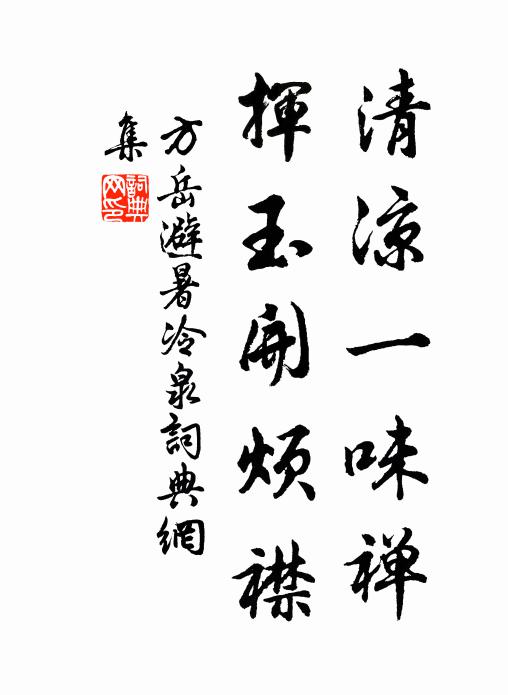 清涼一味禅
揮玉開煩襟
方岳避暑冷泉詞典網
集
詞典
网印